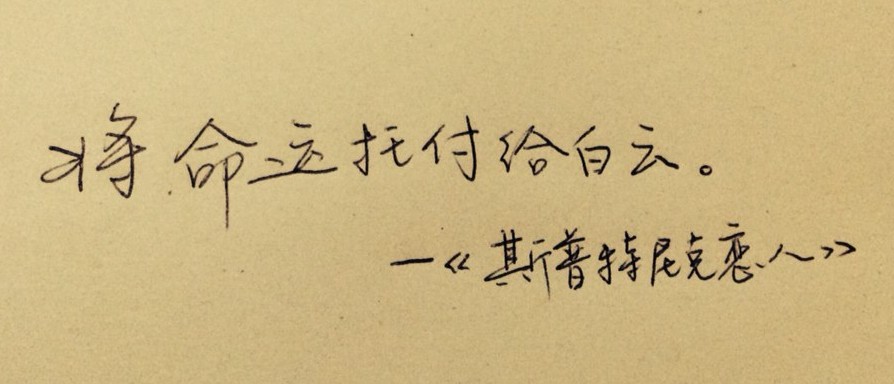 将命运托付给白云。
—《斯普特尼克恋人》